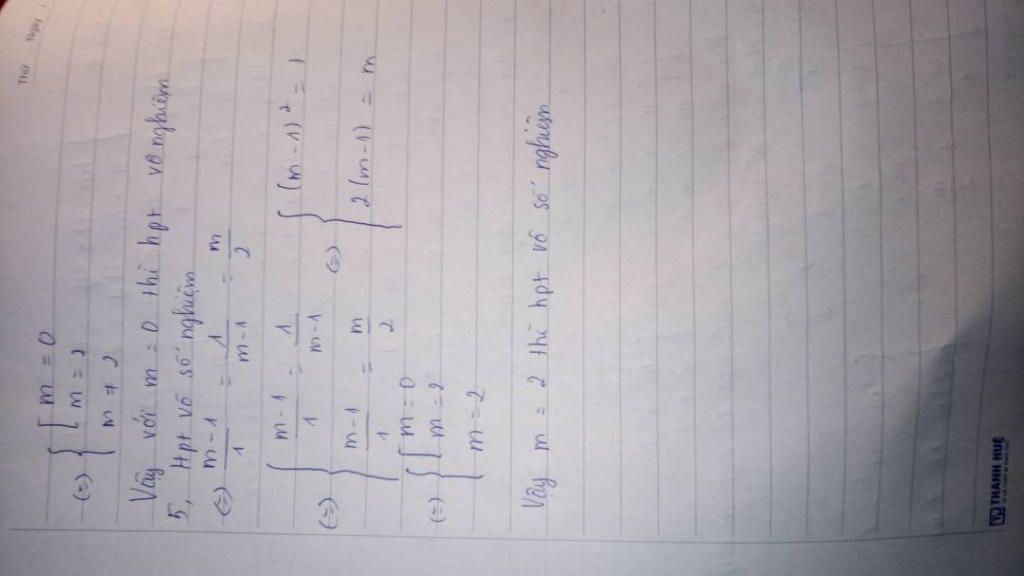 Thứ
Ngày
(=) { [ m = 0
[ m = 2
m ≠ 2
Vậy với m = 0 thì hpt vô nghiệm
5, Hpt vô số nghiệm
(=) (m-1)/1 = 1/(m-1) = m/2
(=) { (m-1)/1 = 1/(m-1) (=) { (m-1)² = 1
(m-1)/1 = m/2 2(m-1) = m
(=) { [ m = 0
[ m = 2
m = 2
Vậy m = 2 thì hpt vô số nghiệm
THANH HUỆ